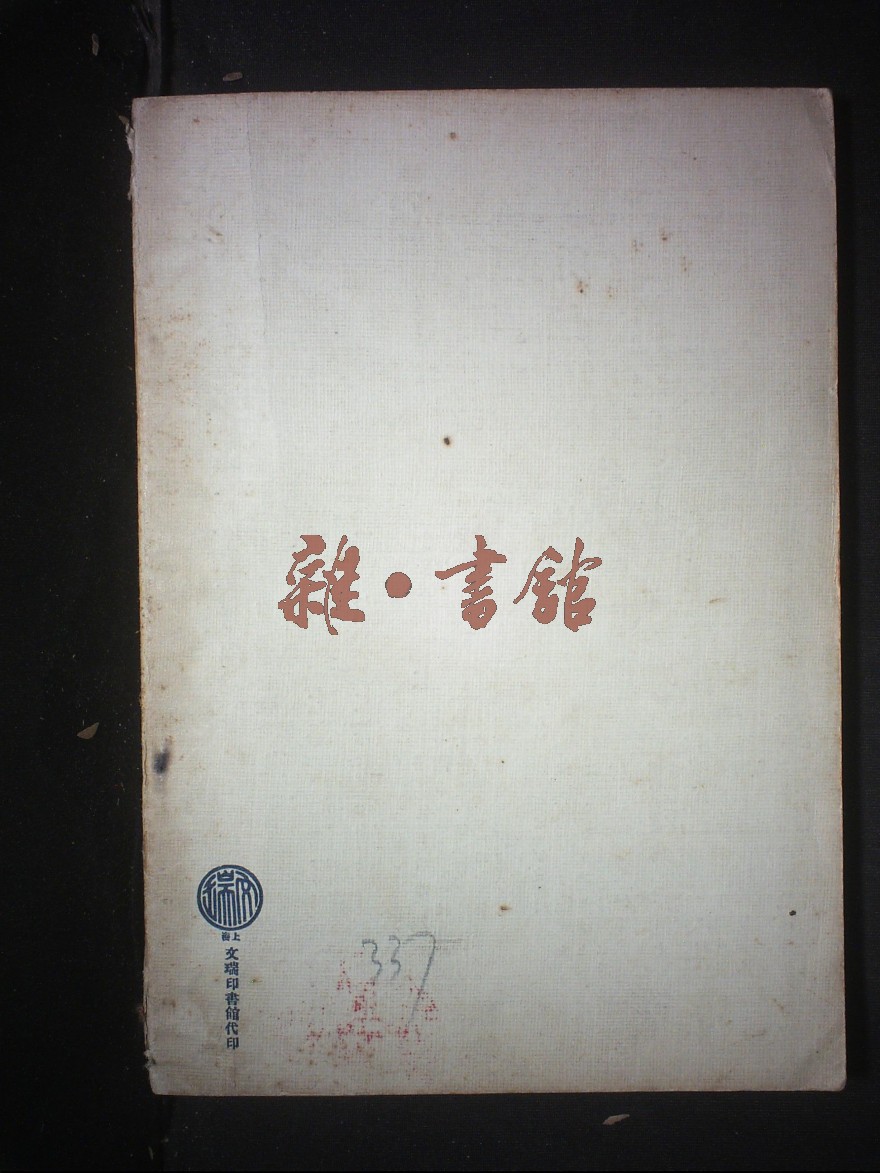 雜·書館
文瑞
上海
文瑞印書館代印
337